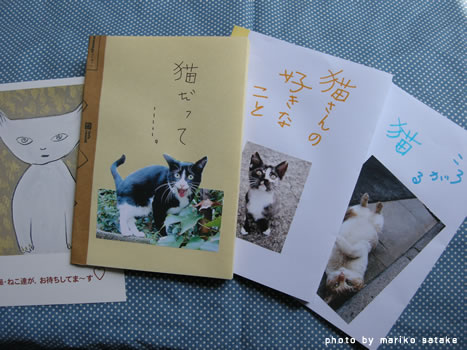 ・ねこ達が、お待ちしてま〜す♡
猫だって
.....。
猫さんの
好きな
こと
猫
ころがる
photo by mariko satake